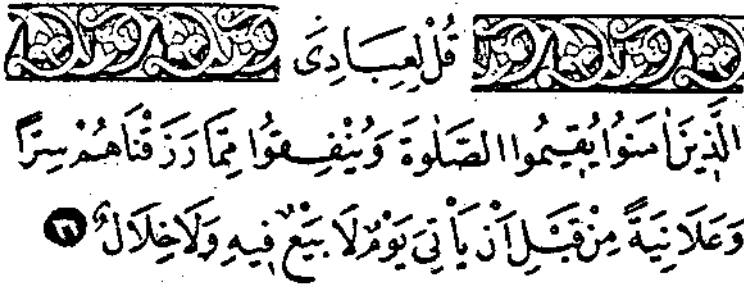 قُلْ لِعِبَادِىَ
الَّذِينَ اٰمَنُوا يُقِيمُوا الصَّلٰوةَ وَيُنْفِقُوا مِمَّا رَزَقْنَاهُمْ سِرًّا
وَعَلَانِيَةً مِنْ قَبْلِ اَنْ يَأْتِىَ يَوْمٌ لَا بَيْعٌ فِيهِ وَلَا خِلَالٌ ٣١